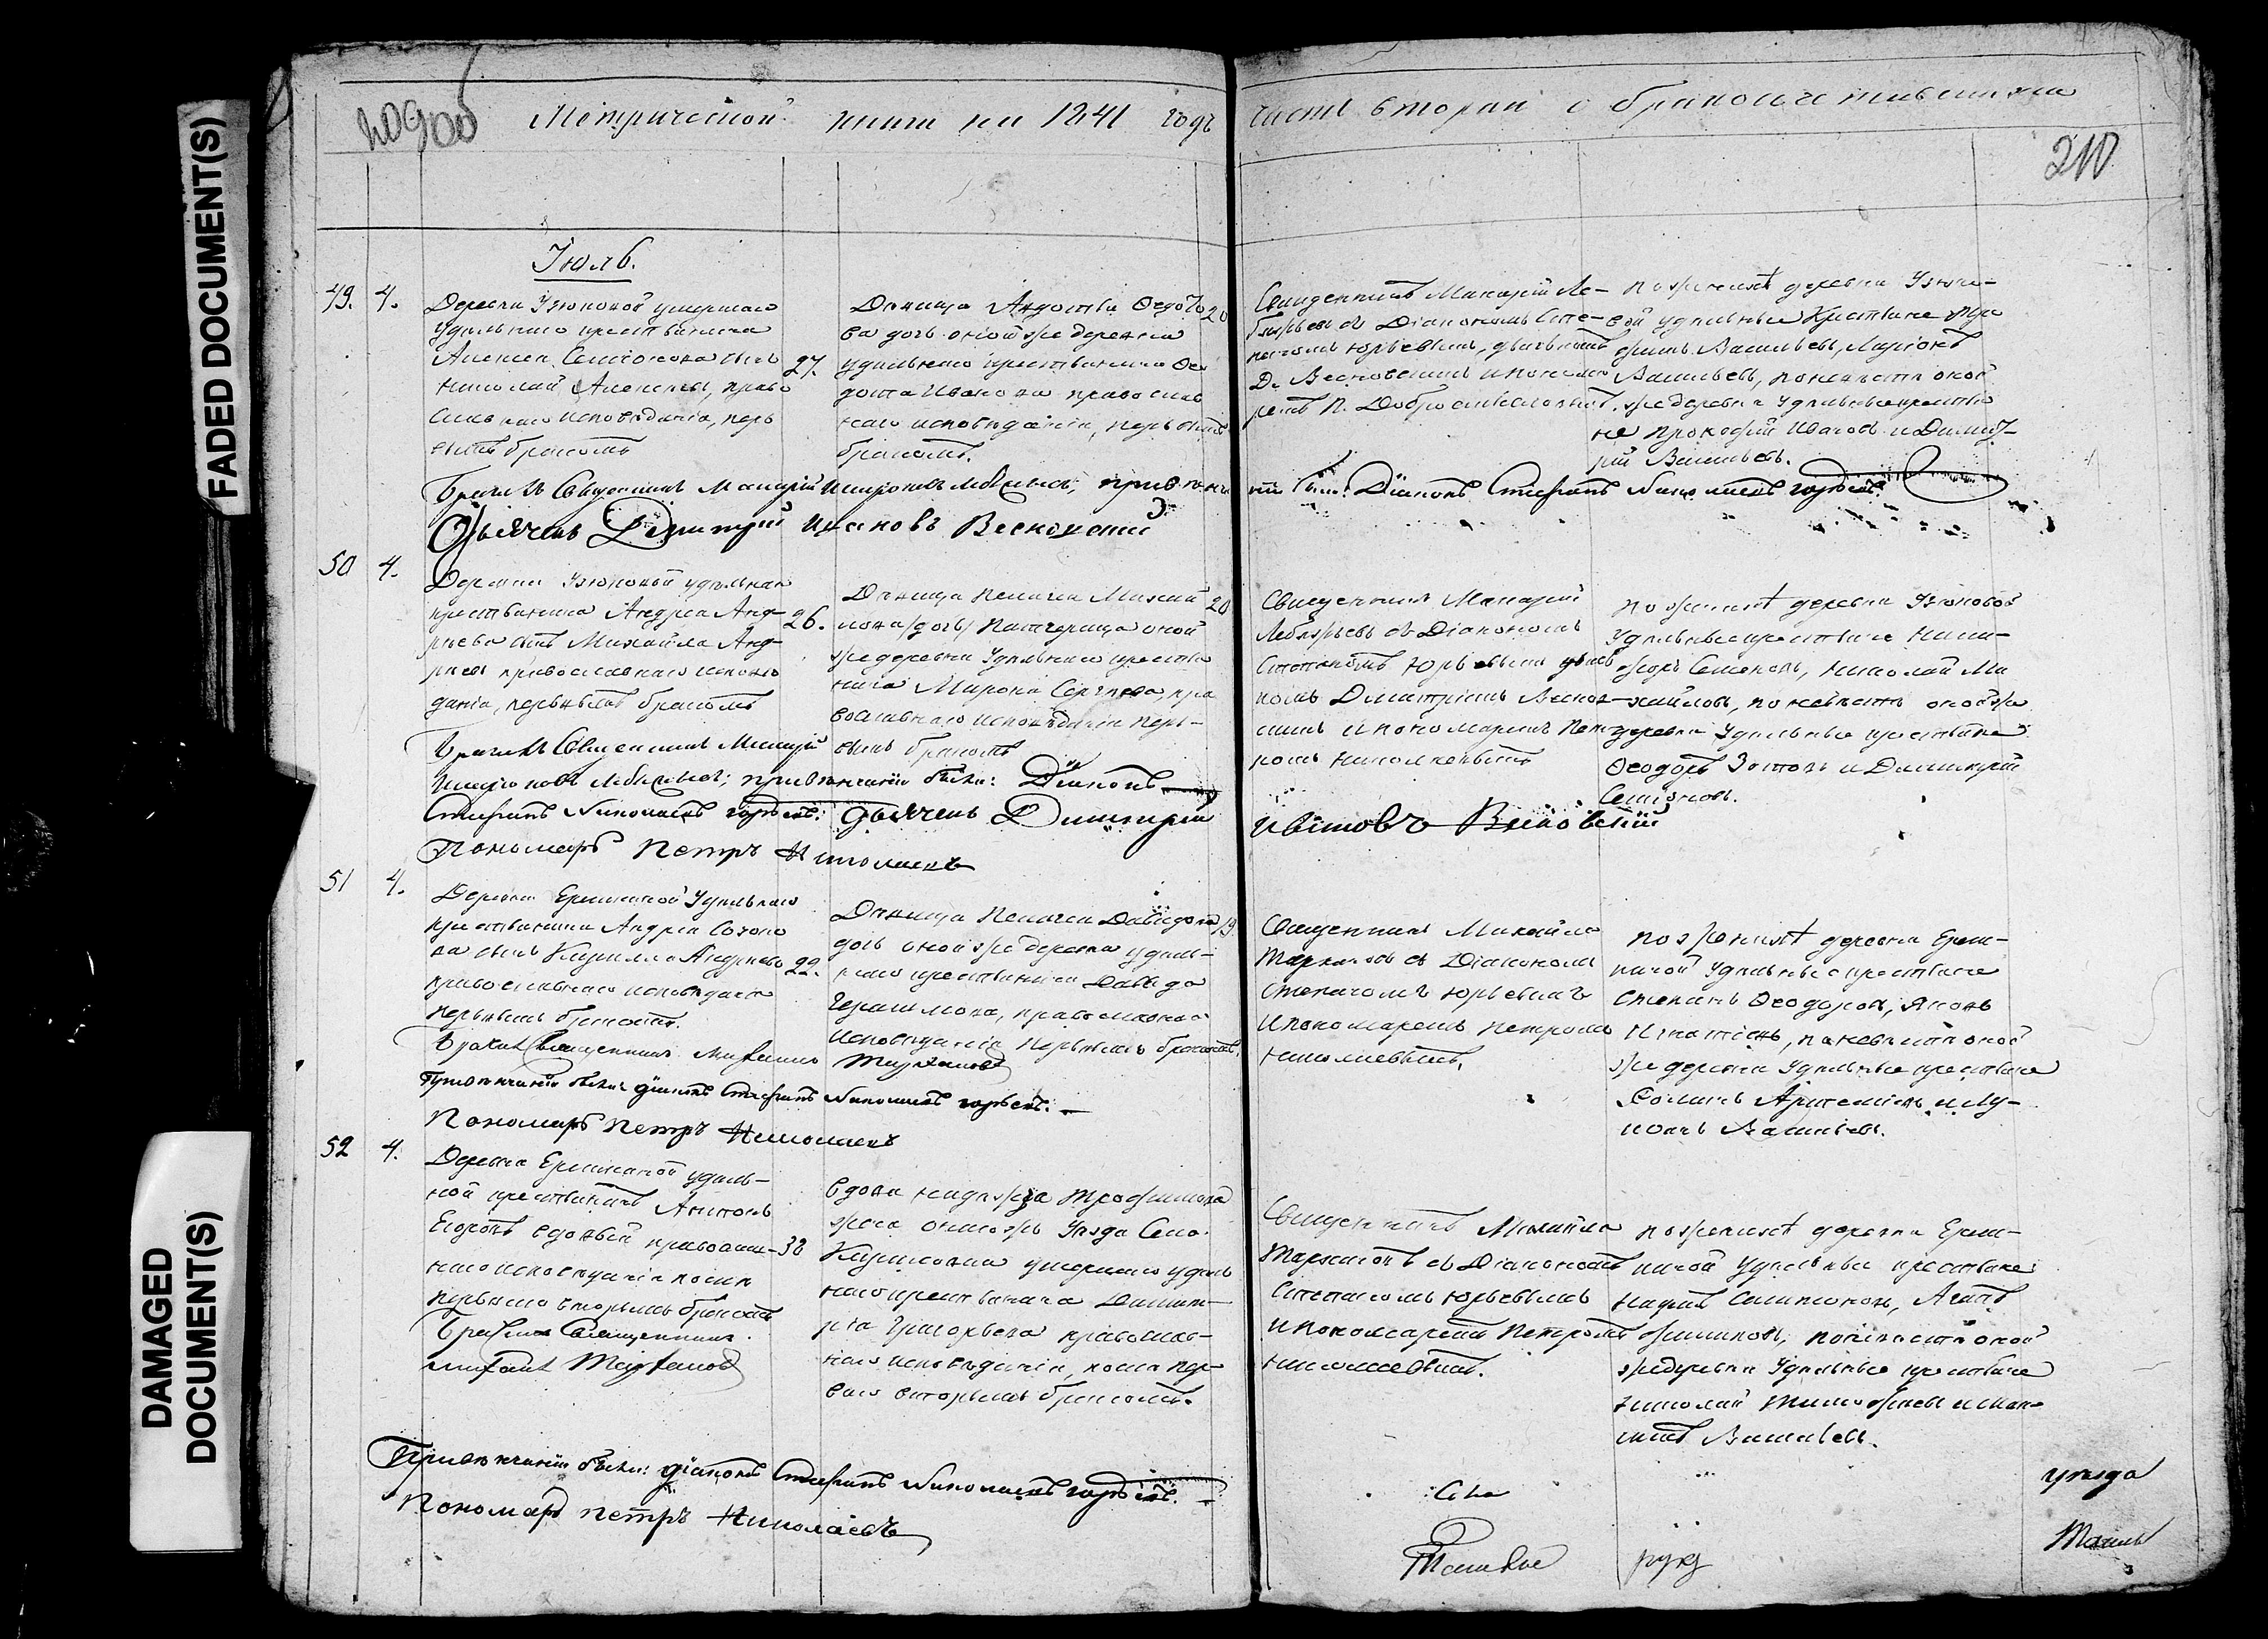 FADED DOCUMENT(S)
DAMAGED
DOCUMENT(S)
Метрической книги на 1841 годъ
часть вторая о бракосочетавшихся
210
Іюль.
49. 4.
Деревни Узюковой умершаго
удѣльнаго крестьянина
Алексея Семіонова сынъ
Николай Алексѣевъ, право
славнаго исповѣданія, пер
вымъ бракомъ
27.
Дѣвица Авдотья Ѳедото
ва дочь оной же деревни
удѣльнаго крестьянина Ѳе
дота Иванова православ
наго исповѣданія, первымъ
бракомъ.
20
Священникъ Макарій Ле-
бязьевъ съ Діакономъ Сте-
паномъ Юрьевымъ, дьячкомъ
Д. Весновскимъ и понома
ремъ П.
По женихѣ деревни Узюко-
вой удѣльные Крестьяне
Васильевъ, Ларіонъ
Васильевъ, по невѣстѣ оной
же деревни Удѣльные крестья
не Прокофій Ивановъ и Димит-
рій Васильевъ.
Бракъ вѣ Священникъ Макарій
Діаконъ Стефанъ Николаевъ Юрьевъ.
Дьячекъ Димитрій Ивановъ Весновскій
50 4.
Деревни Узюковой удѣльнаго
крестьянина Андрея Анд-
рѣева сынъ Михайла Анд-
рѣевъ православнаго исповѣ
данія, первымъ бракомъ
26.
Дѣвица Пелагея Михай
лова /дочь/ Патчерица оной
же деревни Удѣльнаго крестья
нина Мирона Сергѣева, пра
вославнаго исповѣданія пер-
вымъ бракомъ
20
Священникъ Макарій
Лебязьевъ съ Діакономъ
Степаномъ Юрьевымъ дьяч
комъ Димитріемъ Веснов-
скимъ и пономаремъ Пет
ромъ Николаевымъ
По женихѣ деревни Узюковой
Удѣльные крестьяне Ники-
форъ Семеновъ, Николай Ми
хайловъ, по невѣстѣ оной же
деревни Удѣльные крестьяне
Ѳеодоръ Зотовъ и Димитрій
Семіоновъ.
Священникъ Макарій
при вѣнчаніи были: Діаконъ
Стефанъ Николаевъ Юрьевъ. Дьячекъ Димитрій Ивановъ Весновскій
Пономарь Петръ Николаевъ
51 4.
Деревни Еремкиной Удѣльнаго
крестьянина Андрея Созоно
ва сынъ Кирилла Андрѣевъ
православнаго исповѣданія
первымъ бракомъ.
22.
Дѣвица Пелагея Давидова
дочь оной же деревни удѣль-
наго крестьянина Давида
Герасимова, православнаго
исповѣданія первымъ бракомъ.
19.
Священникъ Михайла
съ Діакономъ
Степаномъ Юрьевымъ
и пономаремъ Петромъ
Николаевымъ.
По женихѣ деревни Ерем-
киной Удѣльные крестьяне
Степанъ Ѳеодоровъ, Яковъ
Игнатіевъ, по невѣстѣ оной
же деревни Удѣльные крестьяне
Артеміевъ и Лу-
кіанъ Васильевъ.
Священникъ Михаилъ
При вѣнчаніи были: діаконъ Стефанъ Николаевъ Юрьевъ.
Пономарь Петръ Николаевъ
52 4.
Деревни Еремкиной удѣль-
ной крестьянинъ Антонъ
Егоровъ вдовый православ-
наго исповѣданія послѣ
перваго вторымъ бракомъ
38
Вдова Надежда Трофимова
жена онаго жъ Уѣзда Села
умершаго удѣль
наго крестьянина Димит-
рія Григорьева православ-
наго исповѣданія, послѣ пер-
ваго вторымъ бракомъ.
Священникъ Михайла
съ Діакономъ
Степаномъ Юрьевымъ
и пономаремъ Петромъ
Николаевымъ.
По женихѣ деревни Ерем-
киной Удѣльные крестьяне
по невѣстѣ оной
же деревни Удѣльные крестьяне
Николай Тимофѣевъ и
Васильевъ.
Священникъ
Михаилъ
При вѣнчаніи были: діаконъ Стефанъ Николаевъ Юрьевъ.
Пономарь Петръ Николаевъ
уѣзда